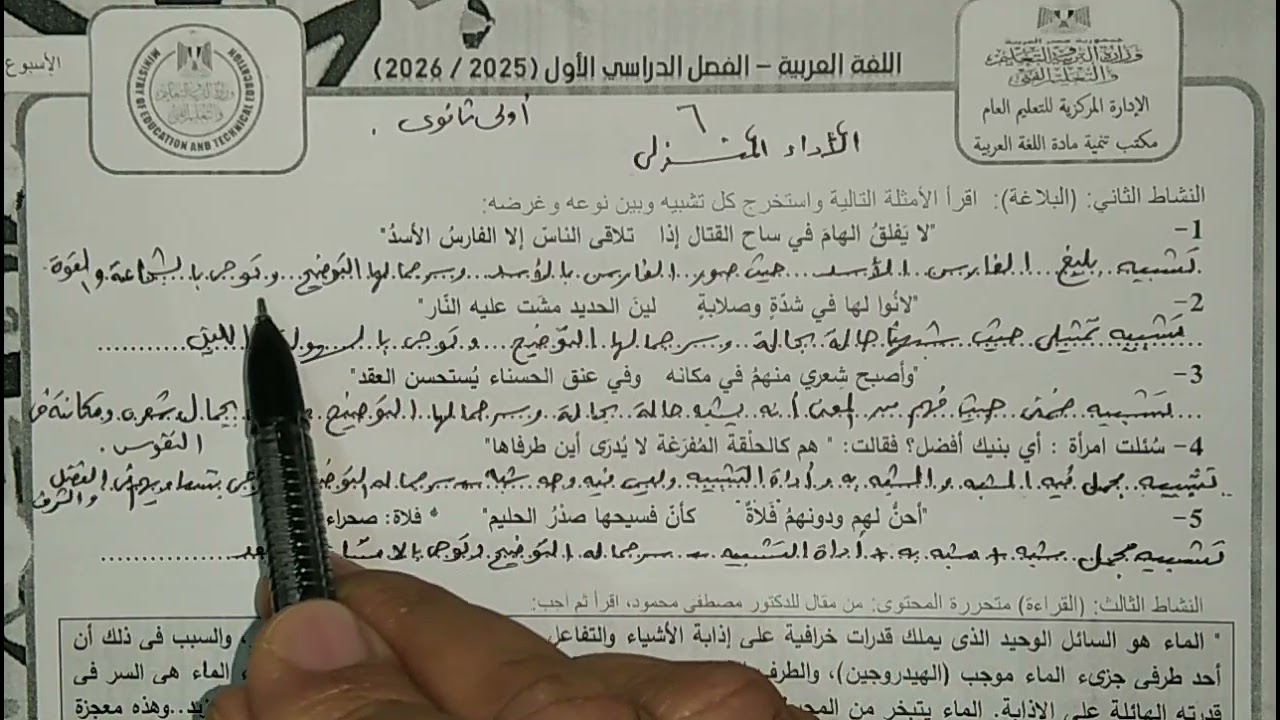 الأسبوع
اللغة العربية – الفصل الدراسي الأول (2025 / 2026)
جمهورية مصر العربية
وزارة التربية والتعليم
والتعليم الفني
الإدارة المركزية للتعليم العام
مكتب تنمية مادة اللغة العربية
MINISTRY OF EDUCATION AND TECHNICAL EDUCATION
أولى ثانوى .
٦
الأداء المنزلى
النشاط الثاني: (البلاغة): اقرأ الأمثلة التالية واستخرج كل تشبيه وبين نوعه وغرضه:
1- "لا يَفلقُ الهامَ في ساح القتال إذا تلاقى الناسَ إلا الفارسُ الأسدُ"
تشبيه بليغ الفارس الأسد حيث صور الفارس بالأسد وسر جمالها التوضيح وتوحى بالشجاعة والقوة
2- "لانُوا لها في شدّةٍ وصلابةٍ لينَ الحديد مشَت عليه النَّار"
تشبيه تمثيلى حيث شبه حالة بحالة وسر جمالها التوضيح وتوحى
3- "وأصبح شِعري منهمُ في مكانه وفي عنق الحسناء يُستحسن العقد"
تشبيه ضمنى حيث فهم من المعنى أنه يشبه حالة بحالة وسر جمالها التوضيح بجمال شعره ومكانته فى
النفوس .
4- سُئلت امرأة : أي بنيك أفضل؟ فقالت: " هم كالحلْقة المُفرَغة لا يُدرَى أين طرفاها"
تشبيه مجمل فيه المشبه والمشبه به وأداة التشبيه وليس فيه وجه شبه سر جماله الفضل
والشرف
5- "أحنُّ لهم ودونهمُ فَلاةٌ كأنّ فسيحها صدْرُ الحليم" * فلاة: صحراء
تشبيه مجمل مشبه + مشبه به + أداة التشبيه - سر جماله التوضيح وتوحى
النشاط الثالث: (القراءة) متحررة المحتوى: من مقال للدكتور مصطفى محمود، اقرأ ثم أجب:
" الماء هو السائل الوحيد الذى يملك قدرات خرافية على إذابة الأشياء والتفاعل والسبب فى ذلك أن
أحد طرفى جزىء الماء موجب (الهيدروجين)، والطرف الماء هى السر فى
قدرته الهائلة على الإذابة. الماء يتبخر من وهذه معجزة